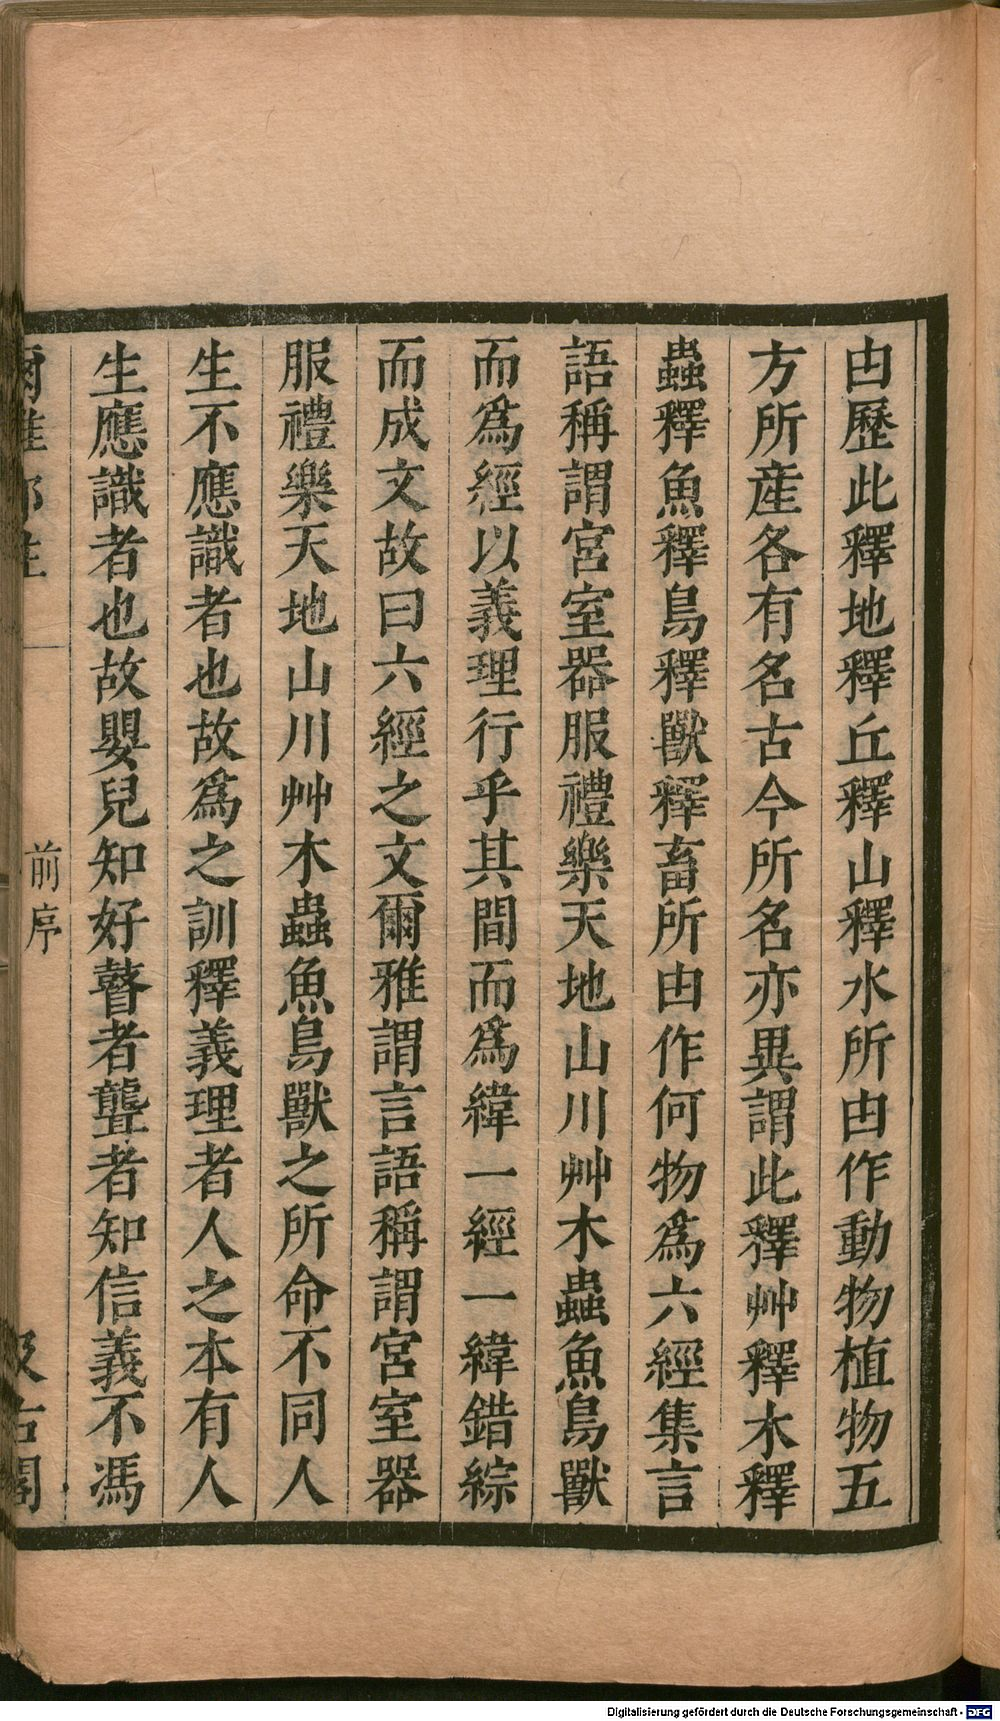 甴歷此釋地釋丘釋山釋水所甴作動物植物五
方所産各有名古今所名亦異謂此釋艸釋木釋
蟲釋魚釋鳥釋獸釋畜所甴作何物爲六經集言
語稱謂宮室器服禮樂天地山川艸木蟲魚鳥獸
而爲經以義理行乎其間而爲緯一經一緯錯綜
而成文故曰六經之文爾雅謂言語稱謂宮室器
服禮樂天地山川艸木蟲魚鳥獸之所命不同人
生不應識者也故爲之訓釋義理者人之本有人
生應識者也故嬰兒知好瞽者聾者知信義不馮
爾雅鄭注 前序 汲古閣
Digitalisierung gefördert durch die Deutsche Forschungsgemeinschaft - DFG